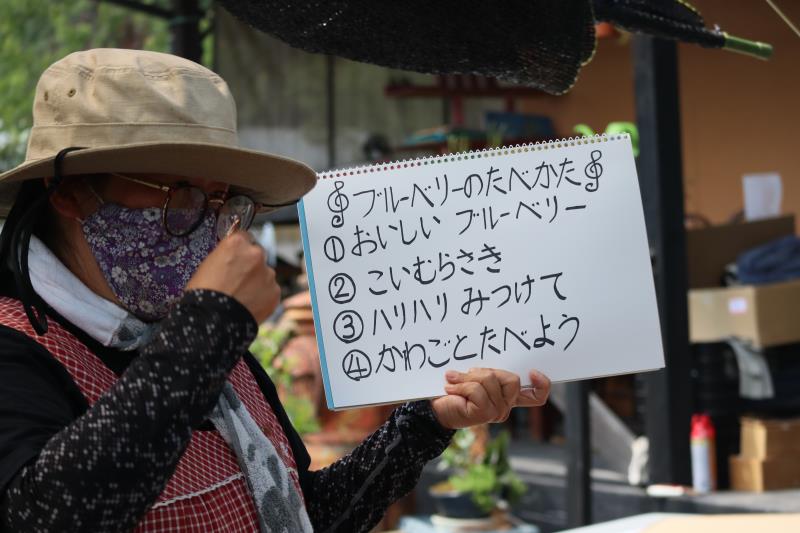 ブルーベリーのたべかた
①おいしい ブルーベリー
②こいむらさき
③ハリハリ みつけて
④かわごとたべよう